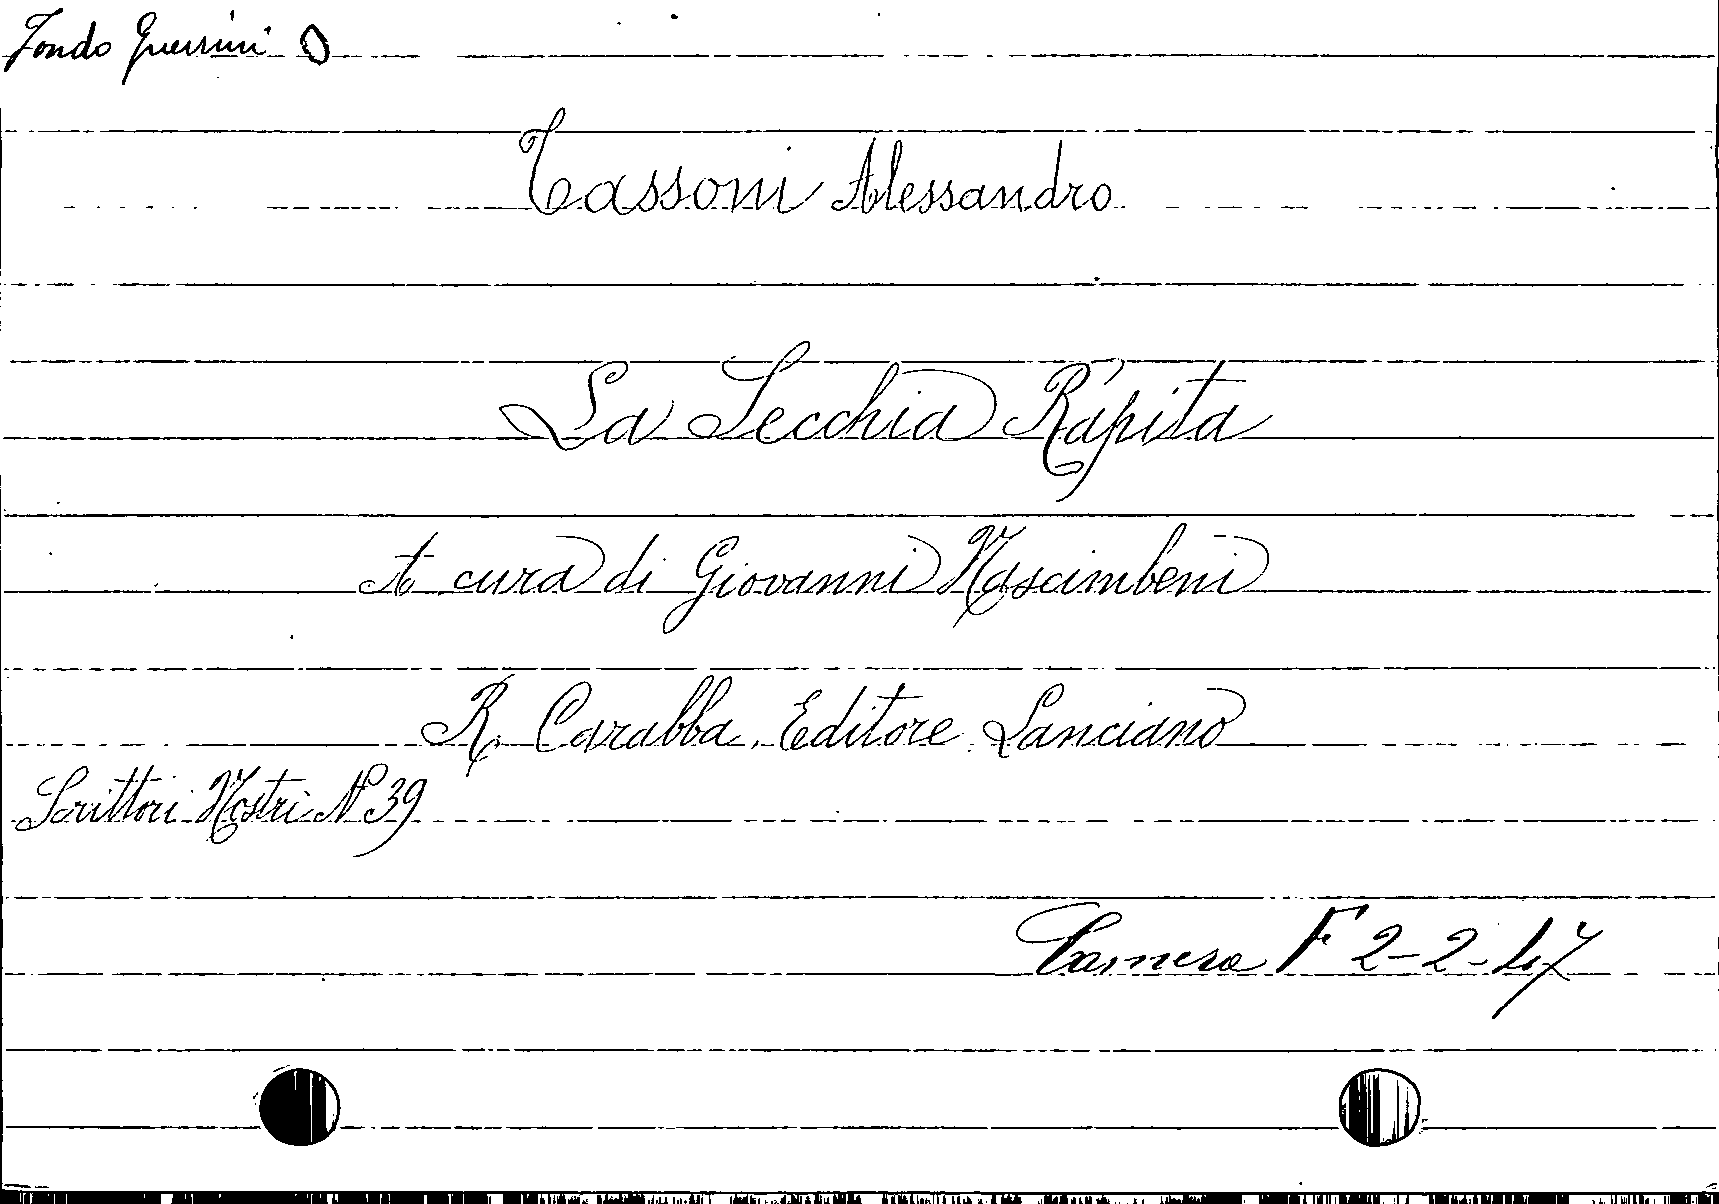 Fondo Guerrini O
Tassoni Alessandro
La Secchia Rapita
A cura di Giovanni Nascimbeni
R. Carabba. Editore. Lanciano
Scrittori Nostri No 39
Camera F 2-2-47